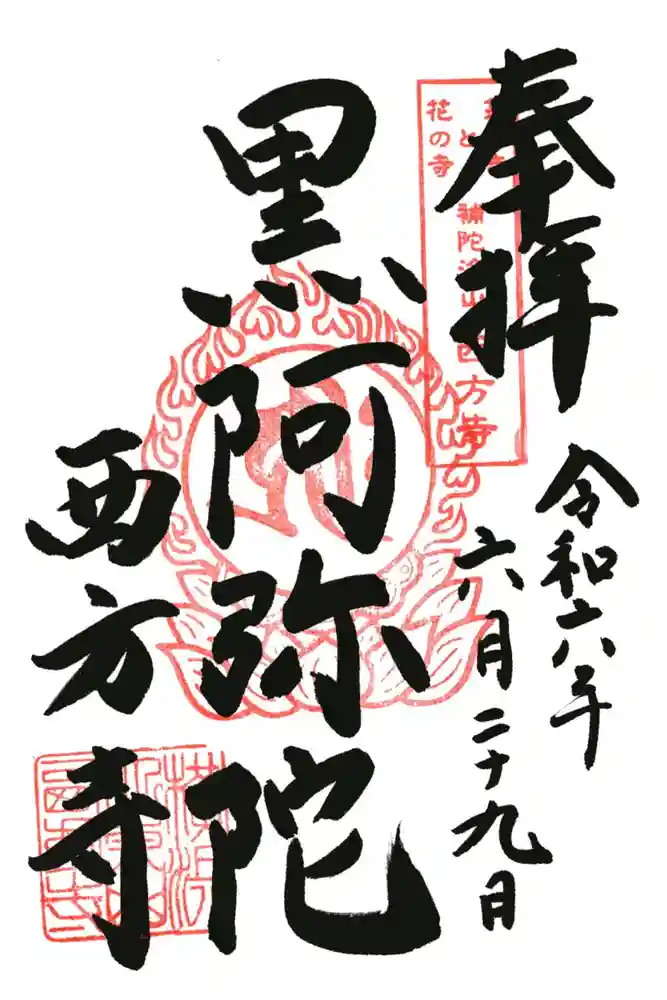 奉拝
令和六年
六月二十九日
花の寺
補陀洛山
西方寺
黒阿弥陀
西方寺